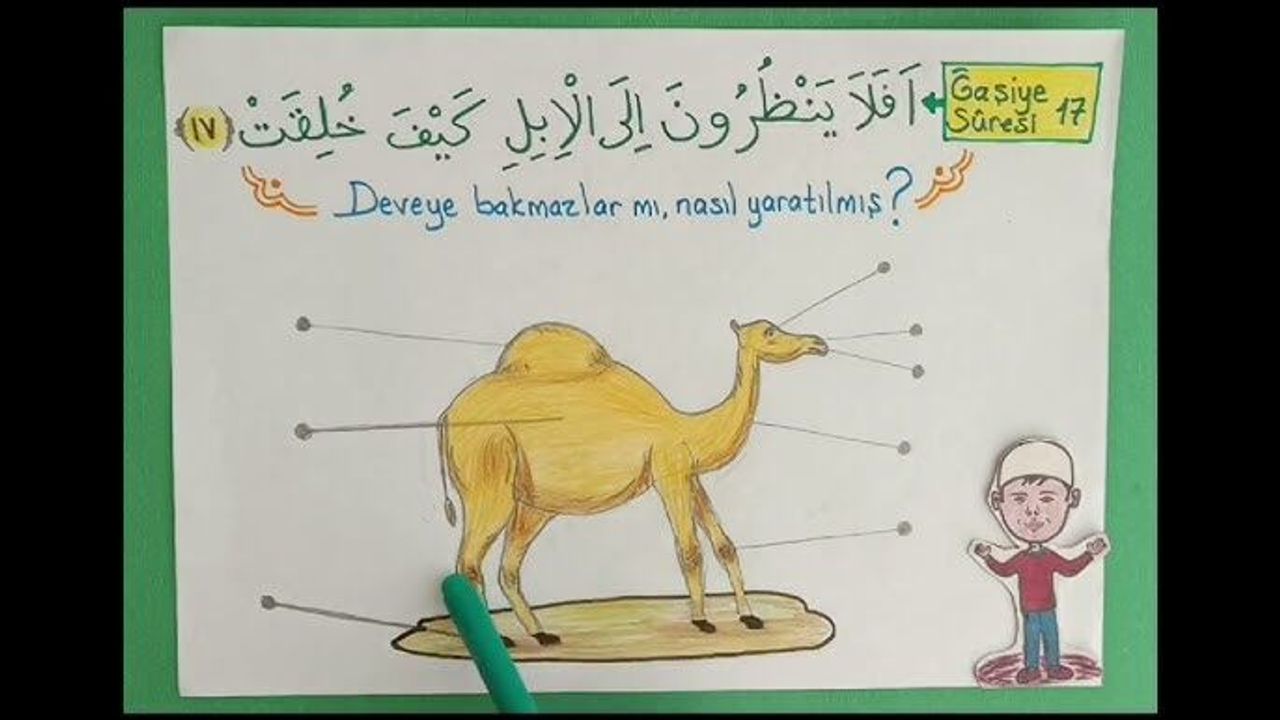 اَفَلَا يَنْظُرُونَ اِلَى الْاِبِلِ كَيْفَ خُلِقَتْ (١٧)
Ğaşiye
Sûresi 17
Deveye bakmazlar mı, nasıl yaratılmış?